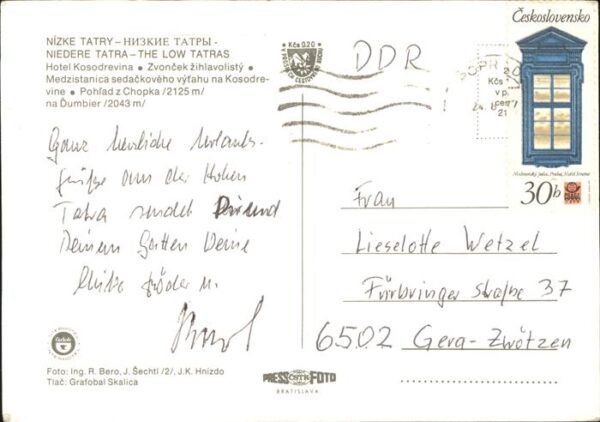 NÍZKE TATRY–НИЗКИЕ ТАТРЫ-
NIEDERE TATRA–THE LOW TATRAS
Hotel Kosodrevina • Zvonček žihlavolistý •
Medzistanica sedačkového výťahu na Kosodre-
vine • Pohľad z Chopka /2125 m/
na Ďumbier /2043 m/
Ganz herzliche Urlaubs-
grüße aus der Hohen
Tatra sendet Dir und
Deinem Gatten Deine
Foto: Ing. R. Bero, J. Šechtl /2/, J.K. Hnízdo
Tlač: Grafobal Skalica
Kčs 0.20
DDR
POPRAD
Kčs
v p.
21
Československo
30h
Frau
Lieselotte Wetzel
Fürbringer Straße 37
6502 Gera-Zwötzen
PRESSFOTO
BRATISLAVA